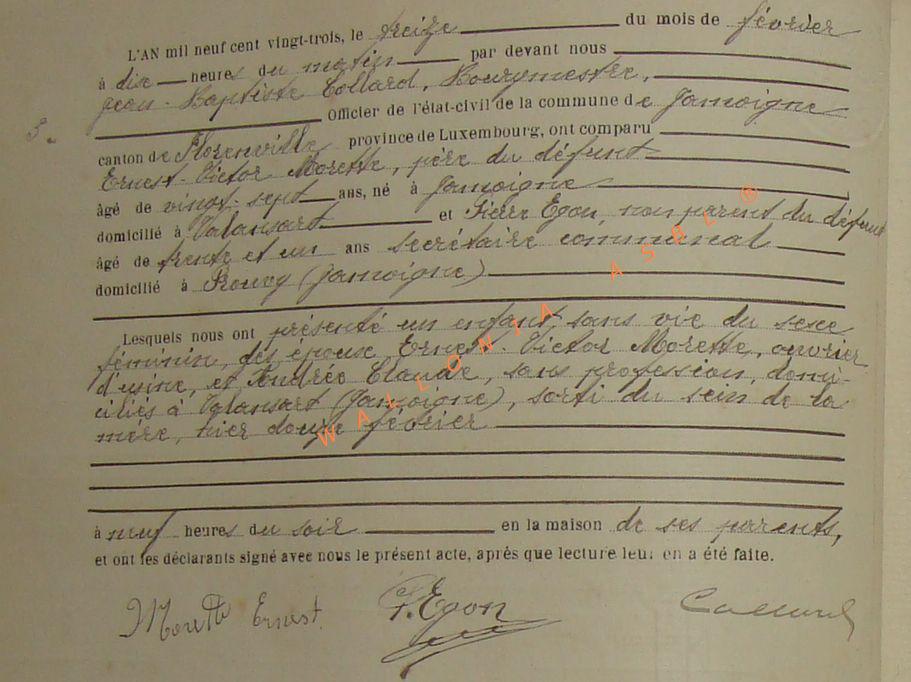 L'AN mil neuf cent vingt-trois, le treize du mois de février
à dix heures du matin par devant nous
Jean-Baptiste Collard, Bourgmestre,
5.
officier de l'état-civil de la commune de Jamoigne
canton de Florenville province de Luxembourg, ont comparu
Ernest-Victor Morette, père du défunt
âgé de vingt-sept ans, né à Jamoigne
domicilié à Valansart et Pierre Egon, non parent du défunt
âgé de trente et un ans secrétaire communal
domicilié à Prouvy (Jamoigne)
Lesquels nous ont présenté un enfant sans vie du sexe
féminin, des époux Ernest-Victor Morette, ouvrier
d'usine, et Andrée Claude, sans profession, domi-
ciliés à Valansart (Jamoigne), sorti du sein de la
mère, hier douze février
à neuf heures du soir en la maison de ses parents,
et ont les déclarants signé avec nous le présent acte, après que lecture leur en a été faite.
Morette Ernest P. Egon Collard
WALLONIA ASBL ®